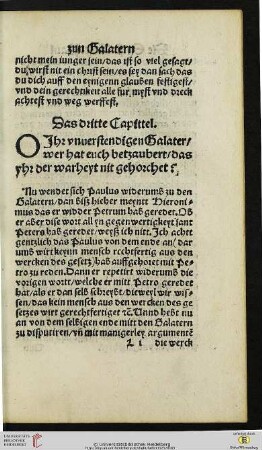 zun Galatern
nicht mein iunger sein/das ist so viel gesagt/
du/wirst nit ein christ sein/es sey dan sach das
du dich auff den eynigenn glauben festigest/
vnd dein gerechtikeit alle für myst vnd dreck
achtest vnd weg werffest.
Das dritte Capittel.
O Jhr vnuerstendigen Galater/
wer hat euch betzaubert/das
yhr der warheyt nit gehorchet ?
Nu wendet sich Paulus widerumb zu den
Galatern/dan biß hieher meynt Hieroni-
mus das er widder Petrum hab geredet. Ob
er aber diße wort all yn gegenwertigkeyt sant
Peters hab geredet/weyß ich nitt. Jch acht
gentzlich das Paulus von dem ende an/ dar
umb wirt keynn mensch rechtfertig auß den
wercken des gesetz/hab auffgehort mit Pe-
tro zu reden. Dann er repetirt widerumb die
vorigen wortt/welche er mitt Petro geredet
hat/als er dan selb schreybt/diewerl wir wis-
sen/das kein mensch aus den wercken des ge-
setzes wirt gerechtfertiget ꝛc̄. Unnd hebt nu
an von dem selbigen ende mitt den Galatern
zu disputiren/vñ mit mangerley argumentē
L i die werck
UNIVERSITÄTS-BIBLIOTHEK HEIDELBERG
© Universitätsbibliothek Heidelberg